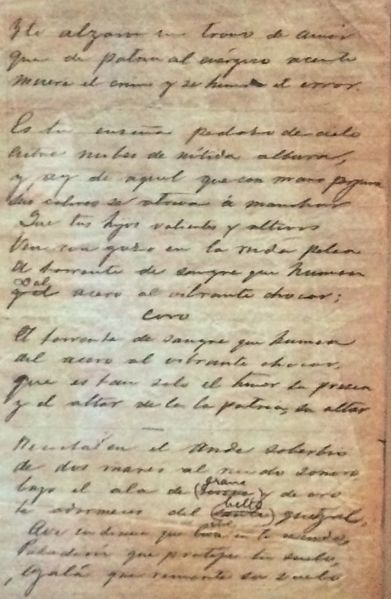 Y le alzaron un trono de amor
que de patria al enérgico acento
muere el crimen y se hunde el error.
Es tu enseña pedazo de cielo
entre nubes de nítida albura,
y ay de aquel que con mano perjura
sus colores se atreva á manchar
Que tus hijos valientes y altivos
Ven con gozo en la ruda pelea
El torrente de sangre que humea
Del acero al vibrante chocar;
Coro
El torrente de sangre que humea
del acero al vibrante chocar,
que es tan solo el honor su presea
y el altar de la la patria, su altar
Recostada en el Ande soberbio
de dos mares al ruido sonoro
bajo el ala de grana y de oro
te adormeces del bello quetzal,
Ave indiana que vive en tu escudo,
Paladión que protege tu suelo,
Ojalá que remonte su vuelo